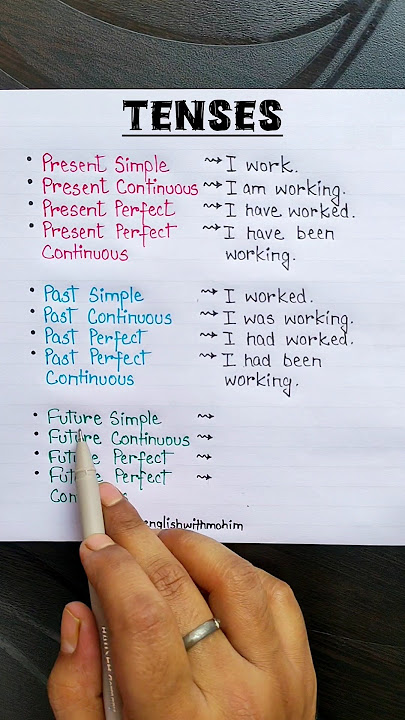 TENSES
• Present Simple ⇝ I work.
• Present Continuous ⇝ I am working.
• Present Perfect ⇝ I have worked.
• Present Perfect ⇝ I have been
Continuous working.
• Past Simple ⇝ I worked.
• Past Continuous ⇝ I was working.
• Past Perfect ⇝ I had worked.
• Past Perfect ⇝ I had been
Continuous working.
• Future Simple ⇝
• Future Continuous ⇝
• Future Perfect ⇝
• Future Perfect ⇝
englishwithmohim